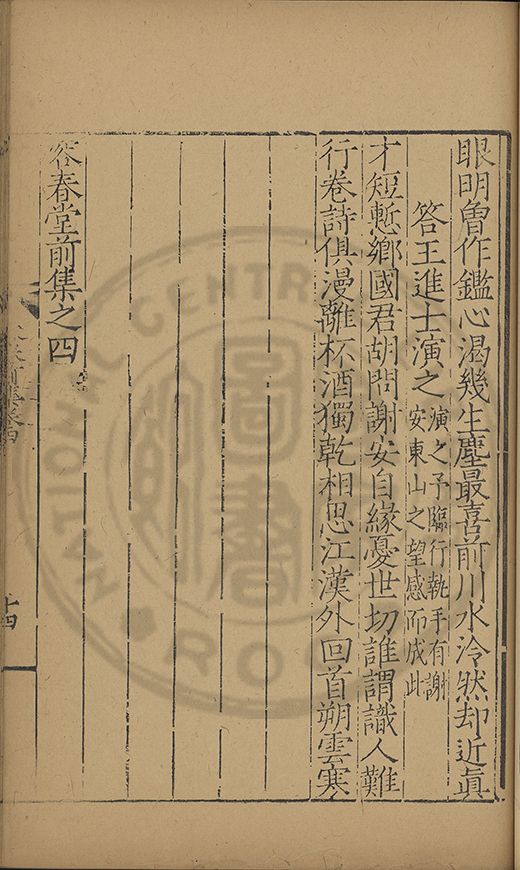 眼明曾作鑑心渴幾生塵最喜前川水泠然却近眞
答王進士演之
演之予臨行執手有謝
安東山之望感而成此
才短慙鄉國君胡問謝安自緣憂世切誰謂識人難
行卷詩俱漫離杯酒獨乾相思江漢外回首朔雲寒
容春堂前集之四
十四